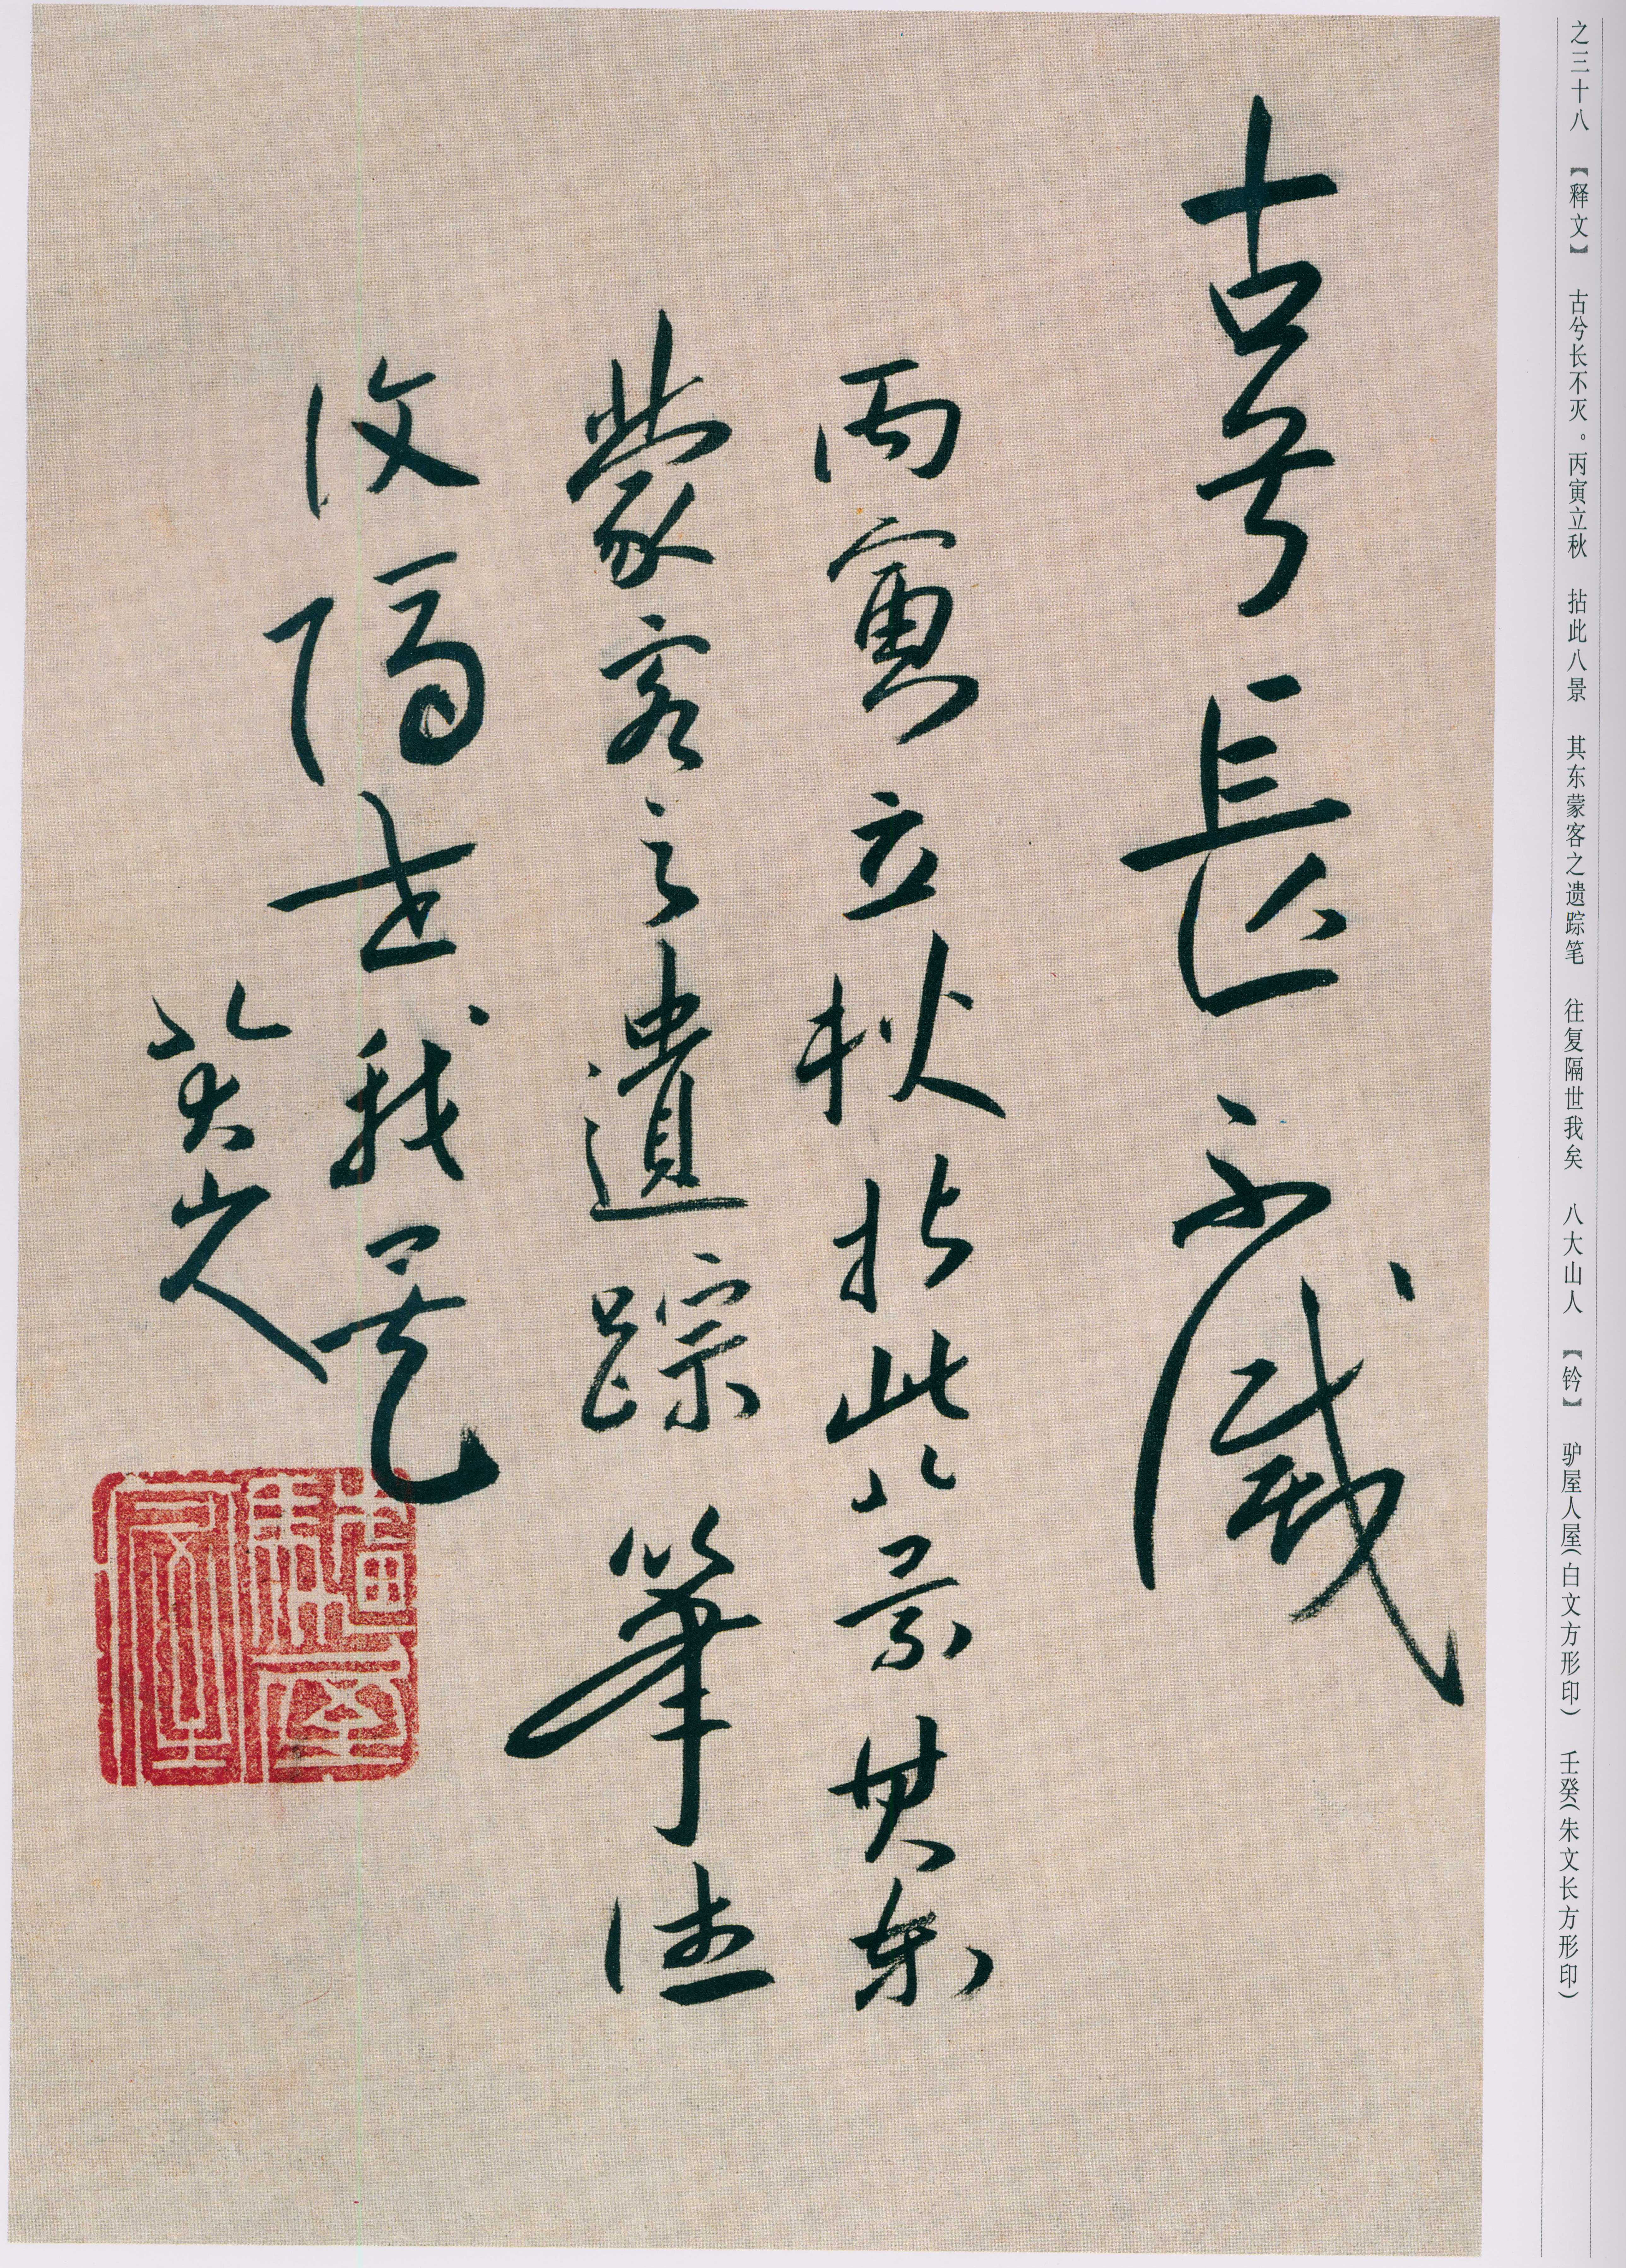 之三十八 【释文】 古兮长不灭。丙寅立秋 拈此八景 其东蒙客之遗踪笔 往复隔世我矣 八大山人 【钤】 驴屋人屋(白文方形印) 壬癸(朱文长方形印)
古兮長不滅
丙寅立秋拈此八景其东
蒙客之遺踪筆往
復隔世我矣
八大山人
驢屋人屋